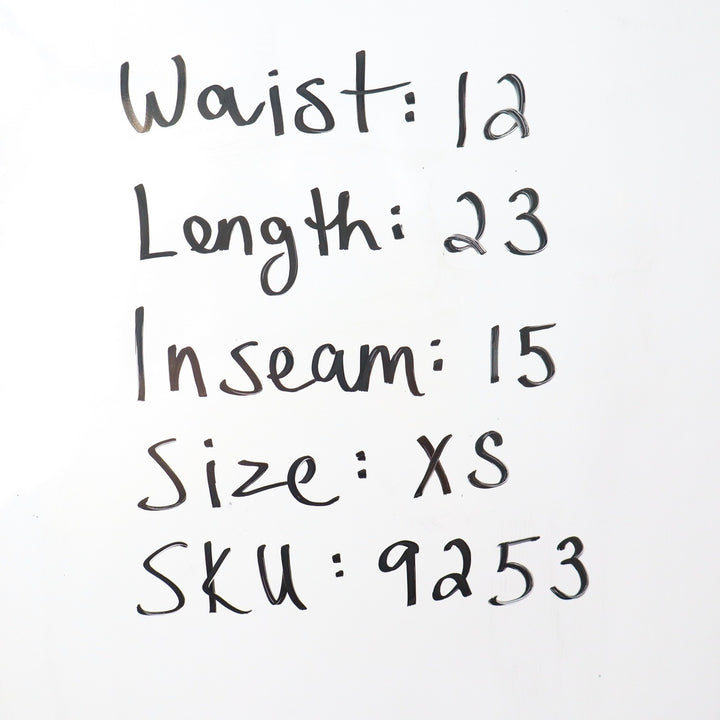 Waist: 12
Length: 23
Inseam: 15
Size: XS
SKU: 9253